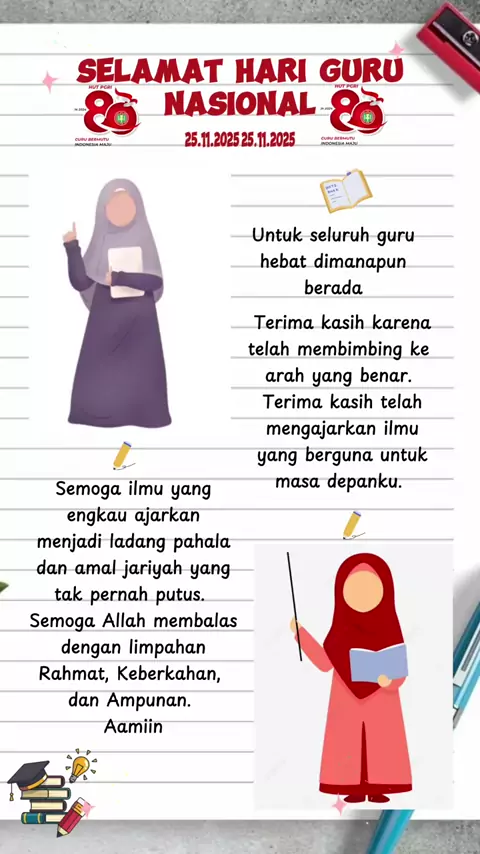 SELAMAT HARI GURU
NASIONAL
HUT PGRI
80
GURU BERMUTU
INDONESIA MAJU
HUT PGRI
80
GURU BERMUTU
INDONESIA MAJU
25.11.2025 25.11.2025
Untuk seluruh guru
hebat dimanapun
berada
Terima kasih karena
telah membimbing ke
arah yang benar.
Terima kasih telah
mengajarkan ilmu
yang berguna untuk
masa depanku.
Semoga ilmu yang
engkau ajarkan
menjadi ladang pahala
dan amal jariyah yang
tak pernah putus.
Semoga Allah membalas
dengan limpahan
Rahmat, Keberkahan,
dan Ampunan.
Aamiin